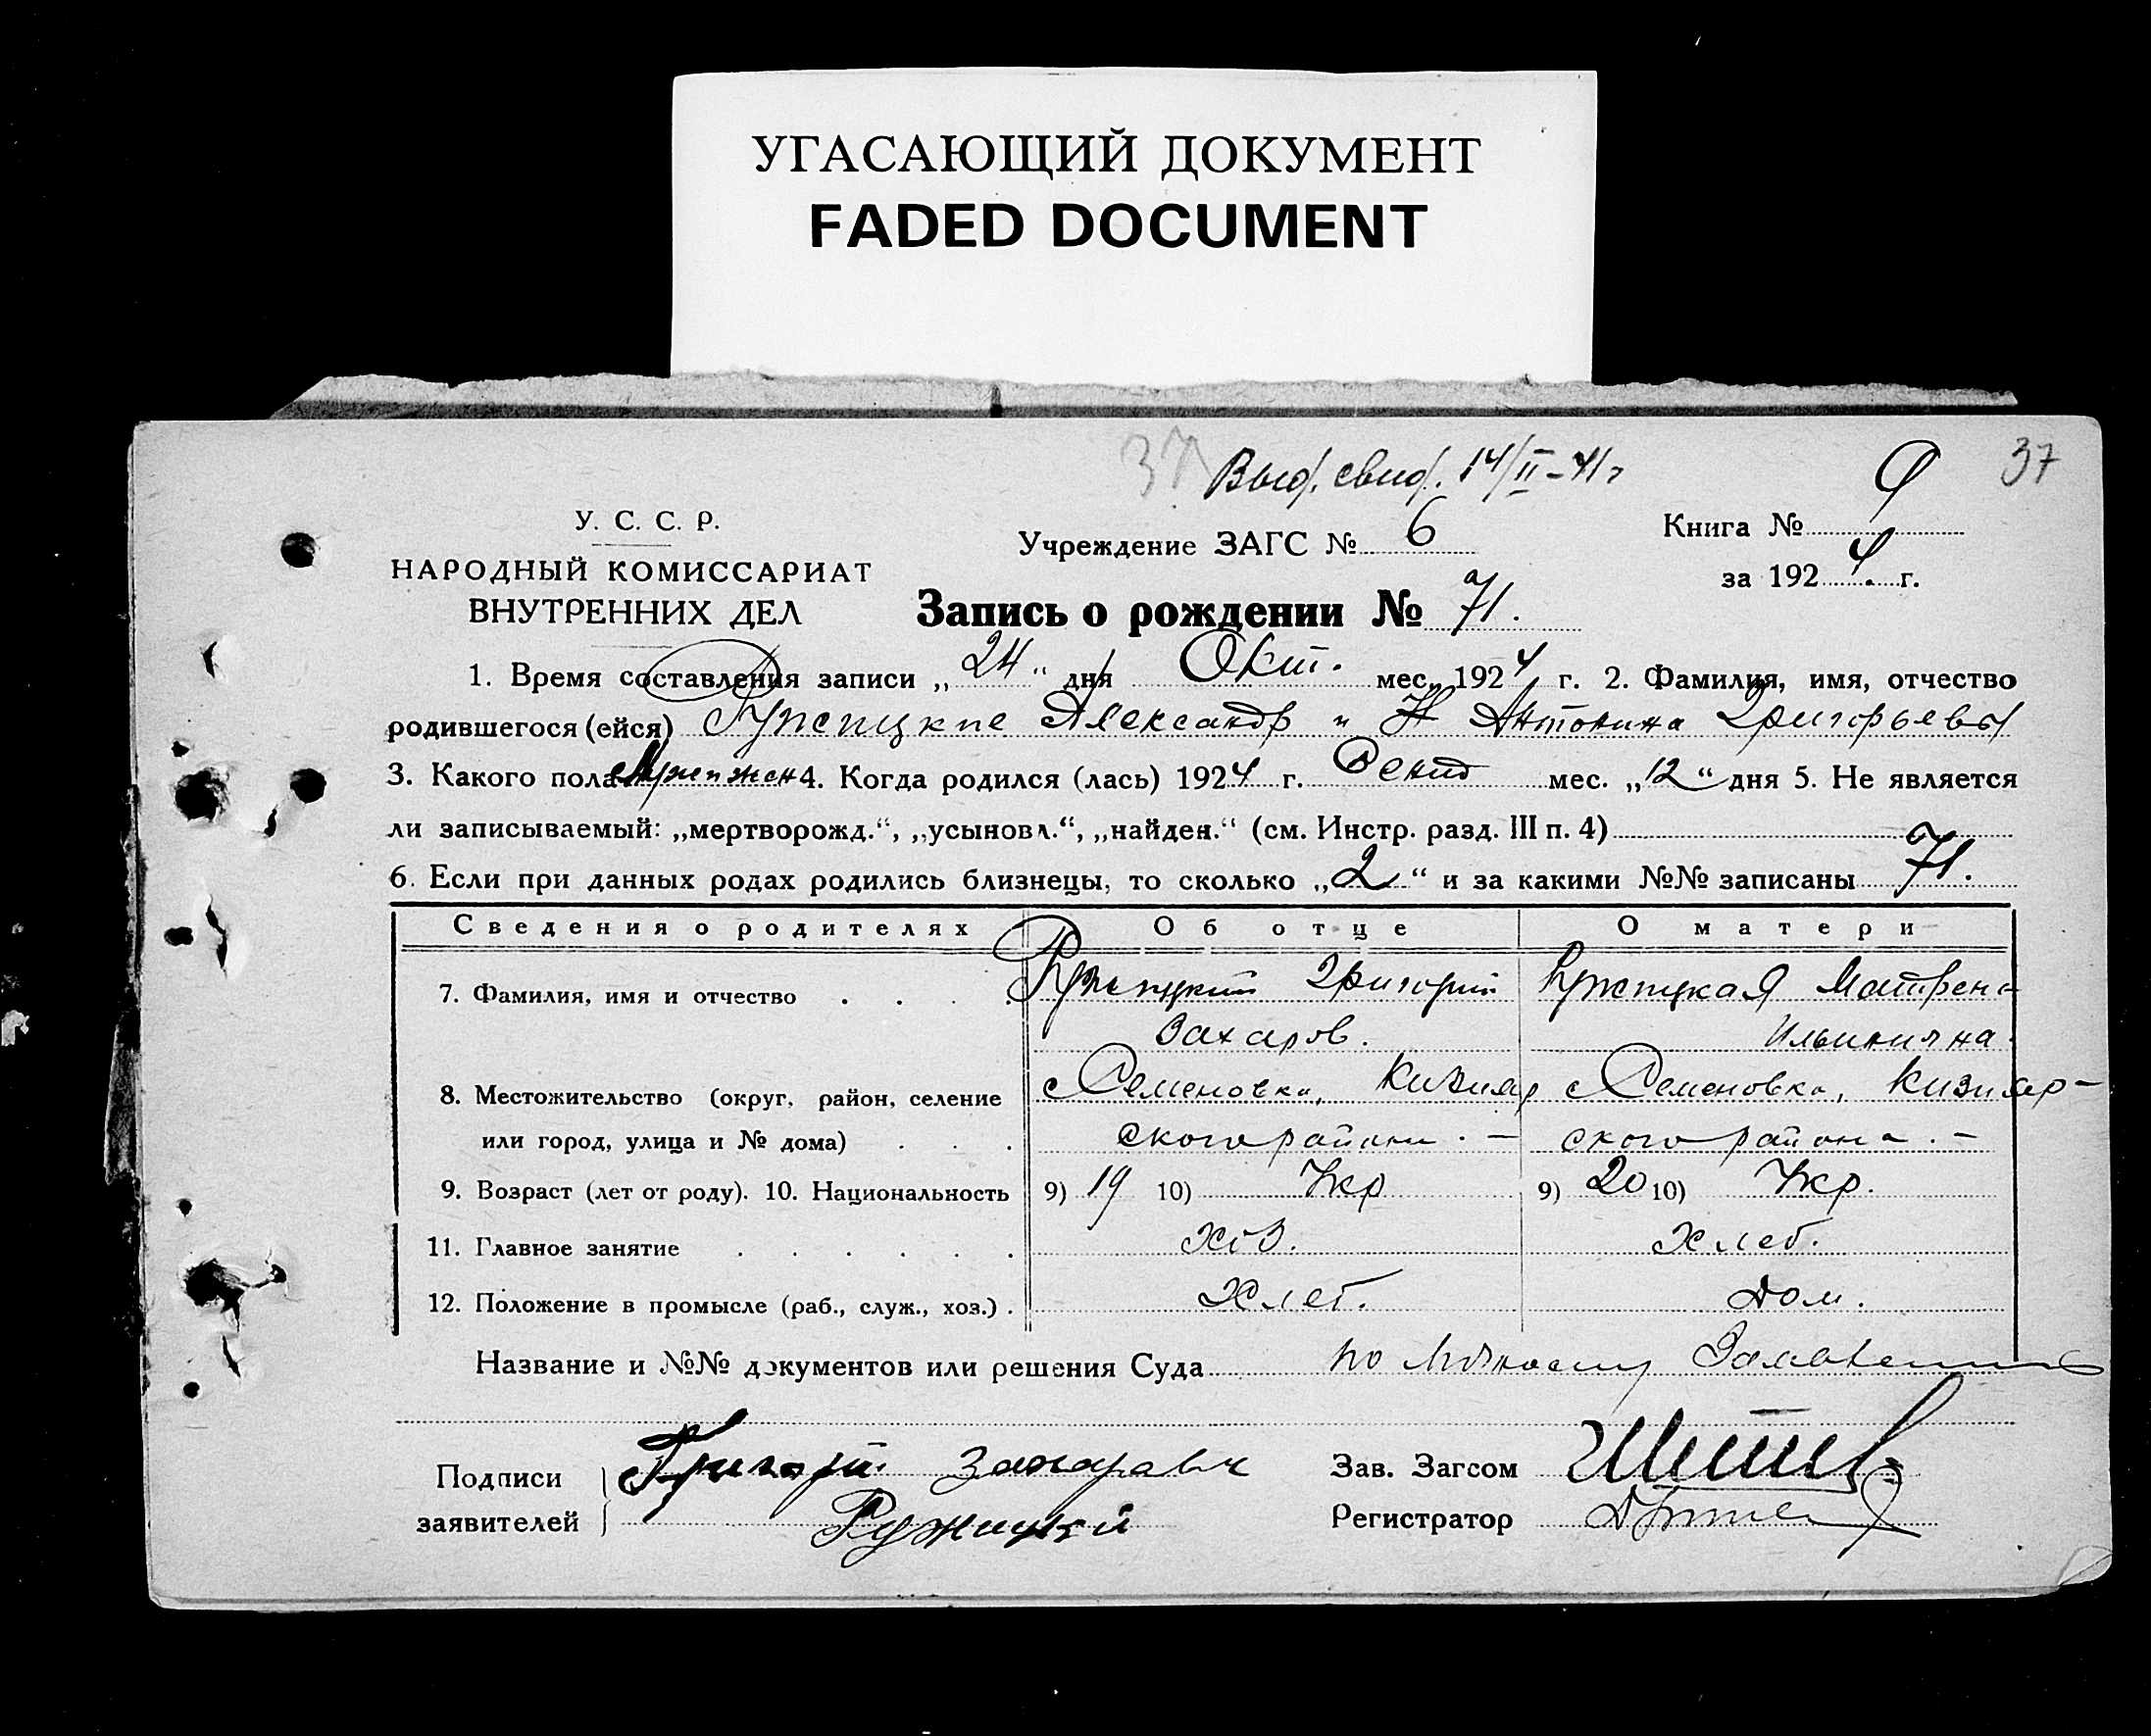 УГАСАЮЩИЙ ДОКУМЕНТ
FADED DOCUMENT
37 Выд. свид. 14/II-41г 37
У. С. С. Р.
НАРОДНЫЙ КОМИССАРИАТ
ВНУТРЕННИХ ДЕЛ
Учреждение ЗАГС № 6
Книга №
за 1924 г.
Запись о рождении № 71.
1. Время составления записи „24" дня Окт. мес. 1924 г. 2. Фамилия, имя, отчество
родившегося (ейся) Ружицкие Александр и Антонина Григорьевы
3. Какого пола Муж и жен 4. Когда родился (лась) 1924 г. мес. „12" дня 5. Не является
ли записываемый: „мертворожд.", „усыновл.", „найден." (см. Инстр. разд. III п. 4)
6. Если при данных родах родились близнецы, то сколько „2" и за какими №№ записаны 71.
Сведения о родителях Об отце О матери
7. Фамилия, имя и отчество . . . . Ружицкий Григорий Ружицкая Матрена
Захаров. Ильинична
8. Местожительство (округ, район, селение с Семеновка, Кизияр с Семеновка, Кизияр-
или город, улица и № дома) . . . ского района. — ского района. —
9. Возраст (лет от роду). 10. Национальность 9) 19 10) Укр 9) 20 10) Укр.
11. Главное занятие . . . . . . хоз. Хлеб.
12. Положение в промысле (раб., служ., хоз.) . Хлеб. Дом.
Название и №№ документов или решения Суда по личному Заявлению
Подписи
заявителей
Григорий Захаравич
Ружицкий
Зав. Загсом
Регистратор